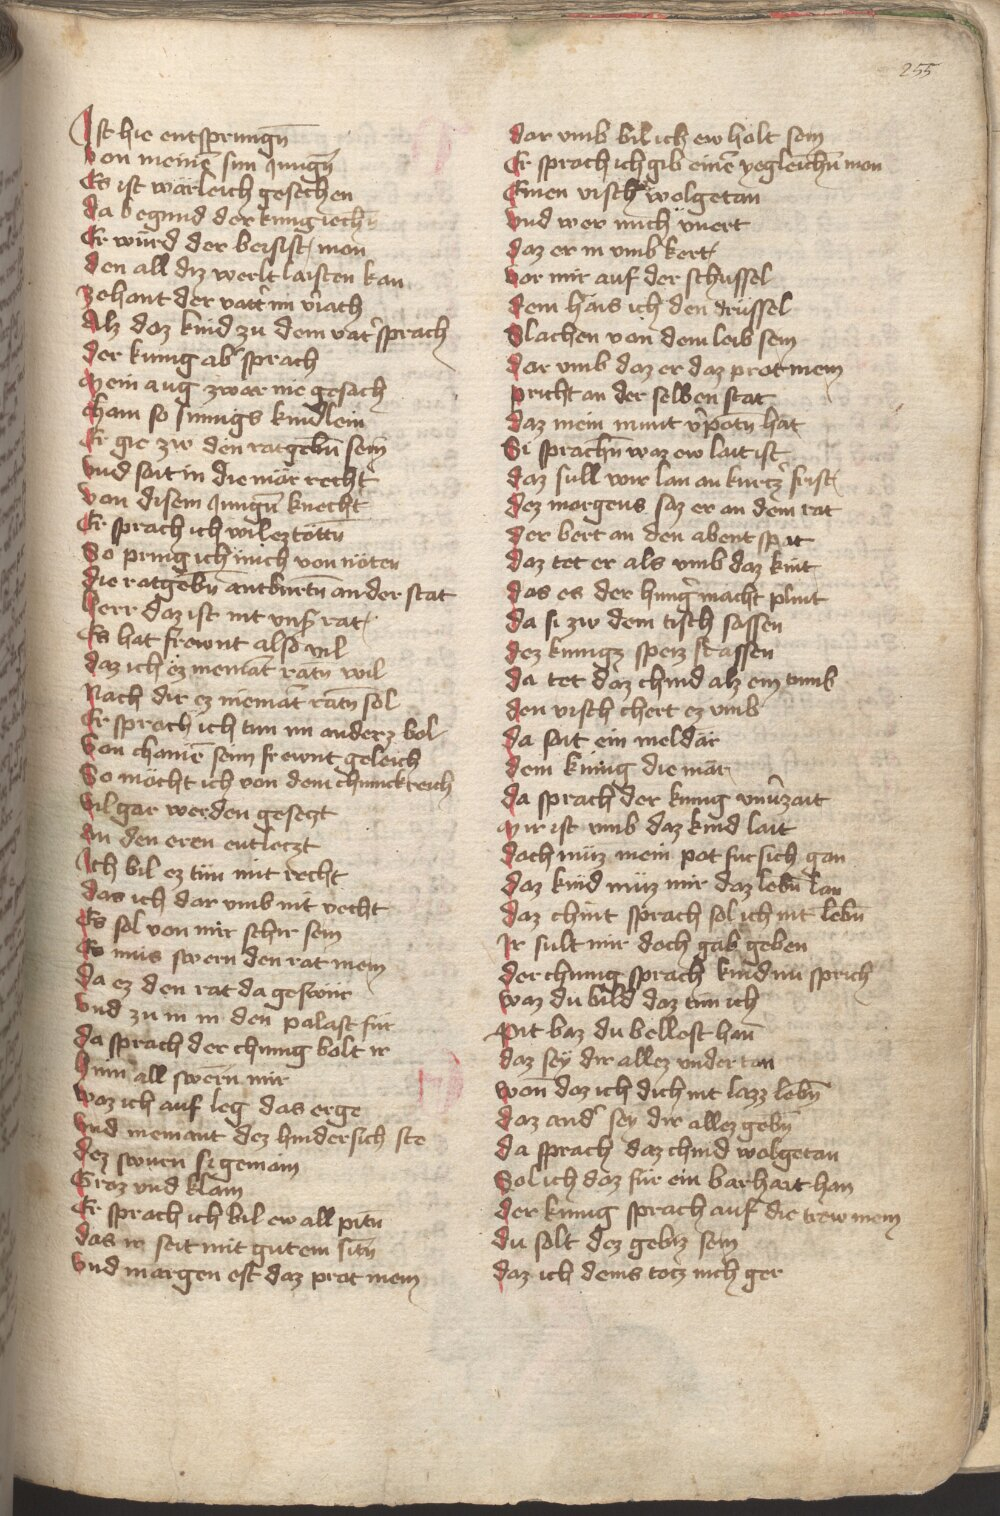 255
Ist hie entsprungn̄
Von meinē sun Jungn̄
Es ist wärleich gesechen
Da begund der kung iechn̄
Er würd der bersist mon
den all diz werlt laisten kan
Zehant der vatt'n im v'iach
Alz daz kind zu dem vat' sprach
der kunig ab' sprach
Mein aug zwar nie gesach
cham so sinnigs kindlein
Er gie zw den ratgebn̄ sein
Vnd sait in die mär recht
Von disem Jungn̄ knecht
Er sprach ich wil ez töttn̄
So pring ich mich von nöten
die ratgebn̄ antburtn̄ an der stat
herr daz ist nit vns' rat
Es hat frewnt also vil
daz ich ez niemāt ratn̄ wil
Nach dir ez niemāt ratn̄ sol
Er sprach ich tun im anderz bol
Von chainē seim frewnt geleich
So möcht ich von dem chunckreich
Vil gar werden gesezt
An den eren entleczt
Ich bil ez tün mit recht
das ich dar vmb nit vecht
Es sol von mir schir sein
Es mus swern den rat mein
Da ez den rat da geswür
Vnd zu in in den palast für
Da sprach der chunig bolt ir
hinn all swern mir
Waz ich auf leg das erge
Vnd niemant dez hindersich ste
Dez swurn si gemain
Groz vnd klain
Er sprach ich bil ew all pitn̄
das ir seit mit gutem sitn̄
Vnd margen est daz prot mein
dar vmb bil ich ew holt sein
Er sprach ich gib einē yegleichn̄ man
Einen visch wolgetan
Vnd wer mich vnert
daz er in vmb kert
Vor mir auf der schüssel
dem hais ich den drüssel
Slachen von dem leib sein
Dar vmb daz er daz prot mein
pricht an der selben stat
daz mein munt v'potn̄ hat
Si sprachn̄ waz ew lait ist
daz sull wir lan an kurtz' frist
dez morgens saz er an dem rat
der bert an den abent spat
daz tet er als vmb daz kint
das es der hung' macht plint
da si zw dem tisch sassen
dez kunigz speiz si assen
Da tet daz chind alz ein tumb
den visch chert ez vmb
da sait ein meldär
dem kunig die mär
da sprach der kunig vnu'zait
Mir ist vmb daz kind lait
doch müz mein pot fur sich gan
daz kind müz mir daz lebn̄ lan
daz chint sprach sol ich nit lebn̄
Ir sult mir doch gab geben
der chunig sprach kind nu sprich
Waz du bild daz tün ich
Pit baz du bellest han
daz sey dir allez vndertan
Won daz ich dich nit lazz lebn̄
daz and' sey dir allez gebn̄
da sprach daz chind wolgetan
Sol ich daz für ein barhait han
der kunig sprach auf die trew mein
du solt dez gebiz sein
daz ich deins totz nich ger